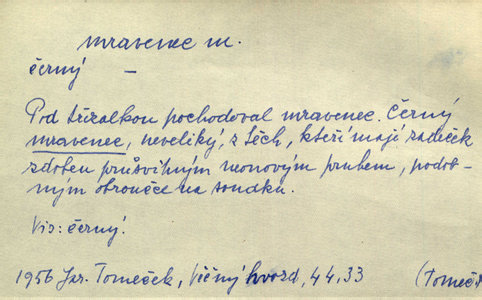 mravenec m.
černý —
Pod třezalkou pochodoval mravenec. Černý
mravenec, neveliký, z těch, kteří mají zadeček
zdoben průsvitným neonovým pruhem, podob-
ným obroučce na soudku.
Viz: černý.
1956 Jar. Tomeček, Věčný hvozd, 44,33 (Tomeč